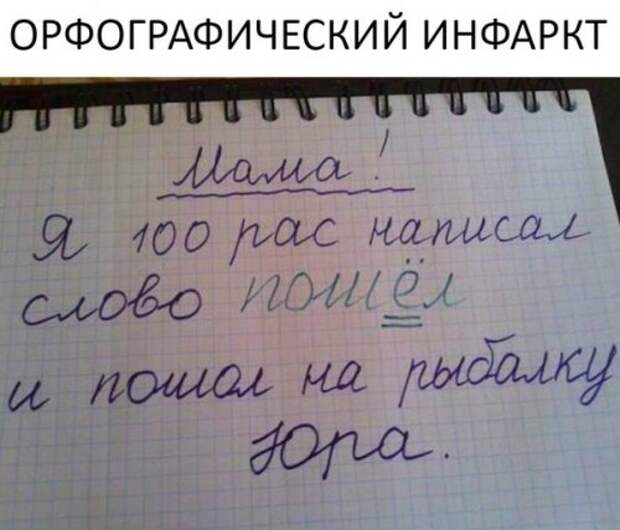 ОРФОГРАФИЧЕСКИЙ ИНФАРКТ
Мама!
Я 100 рас написал
слово пошёл
и пошол на рыбалку
Юра.